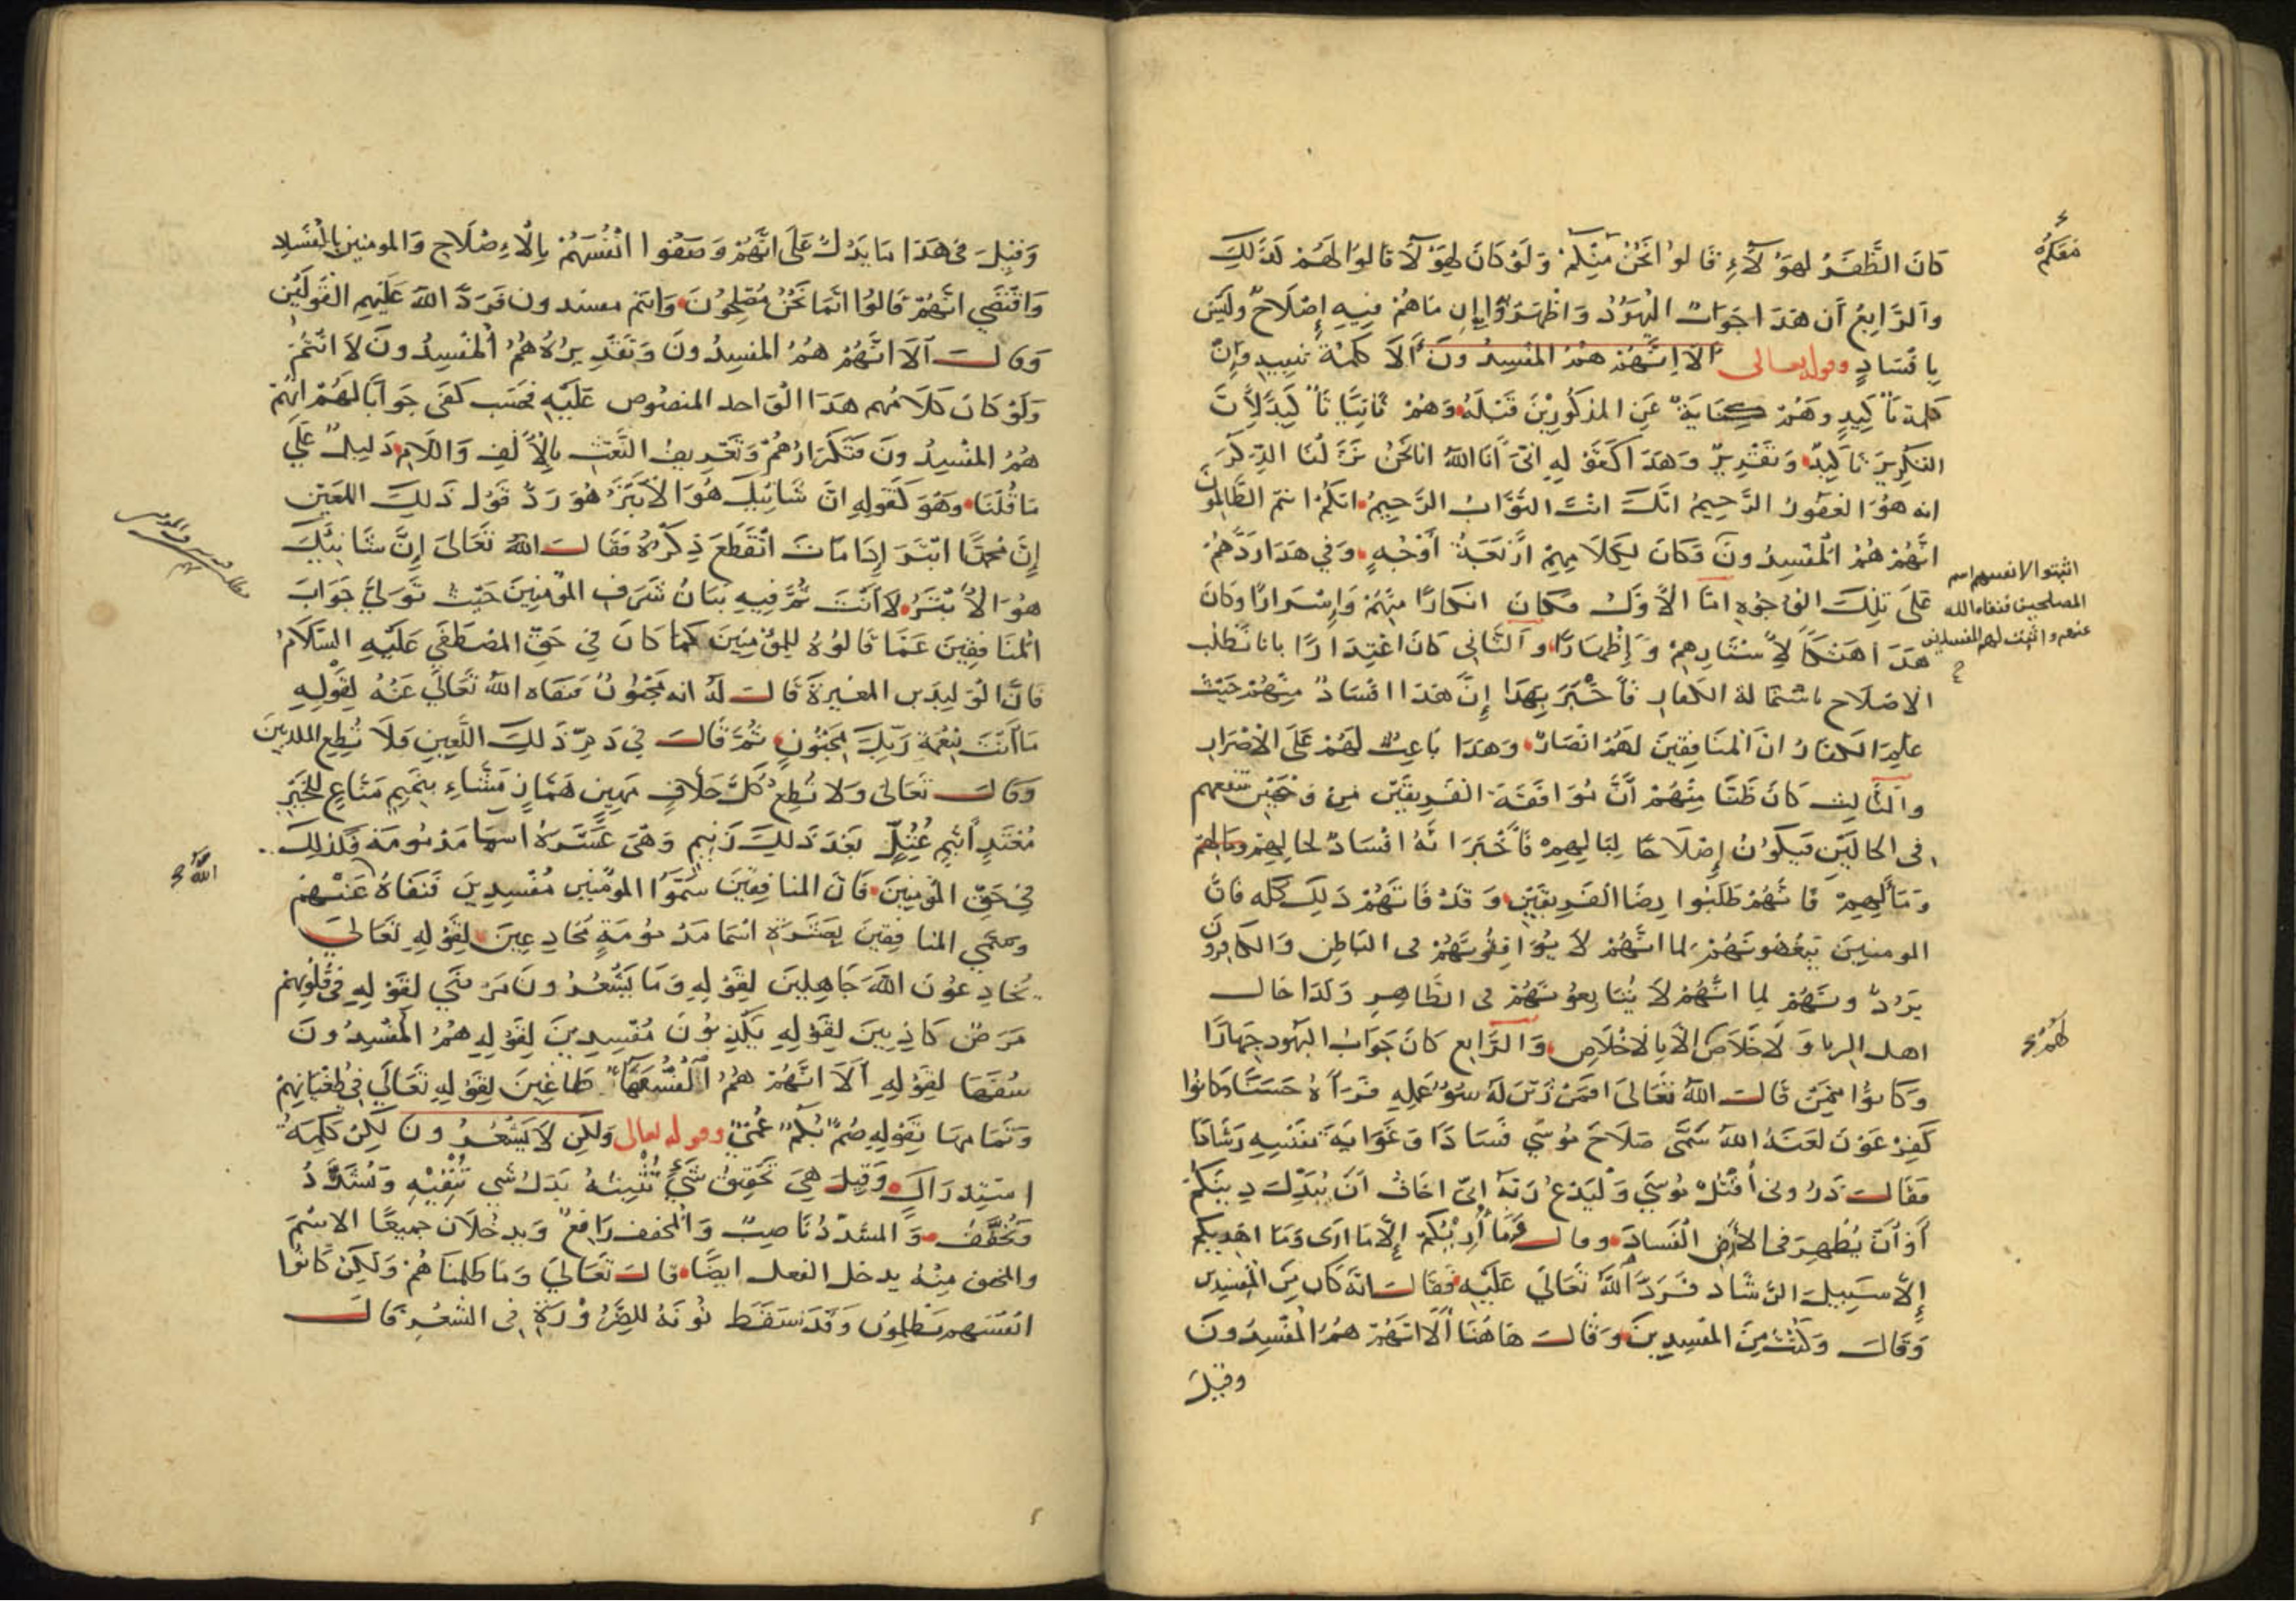 كَانَ الظَّفَرُ لهَؤُلَآءِ قَالُوا نَحْنُ مِنْكُمْ وَلَوْ كَانَ لِهَؤُلَآ قَالُوا لَهُمْ كَذَلِكَ
معكم
وَالرَّابِعُ أن هَذَا جَوَابُ اليَهُودُ وَاظْهَرُوْا ان مَا هُمْ فِيهِ إِصْلَاحٌ ولَيْسَ
بِافْسَادٍ وقوله تعالى أَلَا إِنَّهُمْ هُمُ المُفْسِدُونَ أَلَا كلمة تنبيه وَإِنَّ
كلمة تَأْكِيدٍ وهُمْ كِنَايَةٌ عَنِ المذكُورِيْنَ قَبْلَهُ وَهُمْ ثَانِيًا تَأْكِيدٌ لِأَنَّ
التكرير تَأكِيدٌ وَتَقْدِيرٌ وَهَذَا كَقَوْلِهِ انى أَنَا اللهُ انا نَحْنُ نَزَّلْنَا الذِّكْرَ
انه هُوَ الغَفُورُ الرَّحِيمُ انّكَ انتَ التَّوَّابُ الرَّحِيمُ انكم انتم الظَّالِمُونَ
انَّهُمْ هُمُ الْمُفْسِدُونَ فكَانَ لِكَلَامِهِمْ أَرْبَعَةُ أَوْجُهٍ وَفِي هَذَا رَدَّهُمْ
اثبتوا لانفسهم اسم
المصلحين فنفاه الله
عنهم واثبت لهم المفسدين
عَلَى تِلْكَ الوُجُوهِ امَّا الأَوَّلُ فكَانَ انكارًا مِنْهُمْ وَإِسْرَارًا وَكَانَ
هَذَا هَتْكًا لِأَسْتَارِهِمْ وَإِظْهَارًا وَالثَّانِى كَانَ اعْتِذَارًا بانا نَطْلُب
الاصْلَاح باستمالة الكفار فَأَخْبَرَ بِهَذَا إِنَّ هَذَا افْسَادٌ مِنْهُمْ حَيْثُ
عَلِمَ الكفارُ انَّ المُنَافِقِينَ لَهُمْ انْصَارٌ وَهَذَا بَاعِثٌ لَهُمْ عَلَى الاضْرَار
والثَّالِث كَانَ ظَنًّا مِنْهُمْ أَنَّ مُوَافَقَةَ الفَرِيقَيْنِ مِن وجهين تنفعهم
فى الحالَيْنِ فَيكُونُ إِصْلَاحًا لِبَالِهِمْ فَأَخْبَرَ انَّهُ افْسَادٌ لحَالِهِمْ ومالهم
وَمَآلِهِمْ فَانَّهُمْ طَلَبُوا رِضَا الفَرِيقَيْنِ وَقَدْ فَاتَهُمْ ذَلِكَ كُلّه فانَّ
المومنينَ يَبْغُضُونَهُمْ لما انَّهُمْ لَا يُوَافِقُونَهُمْ فى البَاطِن وَالكافرون
يَرُدُّونَهُمْ لِما انَّهُمْ لَا يُتَابِعُونَهُمْ فى الظَّاهِرِ وَكَذَا حَال
اهل الريا وَلَا خَلَاصَ إلّا بِالاخْلَاصِ وَالرَّابِع كَانَ جَوَابَ اليَهُودِ جِهَارًا
لهم
وَكَانُوا قَالَ اللهُ تَعَالَى افَمَنْ زُيِّنَ لَهُ سُوْءُ عَمَلِهِ فَرَآهُ حَسَنًا وَكَانُوا
كَفِرْعَوْنَ لَعَنَهُ اللهُ سَمَّى صَلَاحَ مُوسَى فَسَادًا وَغَوَايَةَ نَفْسِهِ رَشَادًا
فَقَالَ ذَرُونى أَقْتُلْ مُوسَى وَلْيَدْعُ رَبَّهُ إنّى اخَافُ أنْ يُبَدِّلَ دِينَكُمْ
أَوْ أَنْ يُظْهِرَ فى الأرضِ الفَسَادَ وقال مَا أُرِيكُمْ إِلَّا مَا ارَى وَمَا اهْدِيكُمْ
إِلَّا سَبِيلَ الرَّشَاد فَرَدَّ اللهُ تَعَالَى عَلَيْهِ فَقَالَ انّهُ كان مِنَ المُفْسِدِين
وَقَالَ وَكُنْتَ مِنَ المُفْسِدِينَ وَقَالَ هَاهُنَا أَلَا انَّهُمْ هُمُ الْمُفْسِدُونَ
وقيل
وَقِيْلَ فى هَذَا مَا يَدُلُّ عَلَى انَّهُمْ وَصَفُوا انْفُسَهُمْ بِالاصْلَاحِ وَالمومنين بالفساد
وَاقْتَضَى انَّهُمْ قَالوُا انَّمَا نَحْنُ مُصْلِحُونَ وَانتم مفسدون فَرَدَّ اللهُ عَلَيْهِم القَولَيْنِ
وَقالَ أَلَا انَّهُمْ هُمُ المفسِدُونَ وَتَقْدِيرُهُ هُمُ الْمُفْسِدُونَ لَا انْتُمْ
وَلَوْ كَانَ كَلَامُهم هَذَا الوَاحد المنصُوص عَلَيْهِ فحَسْب كَفَى جَوَابًا لَهُمْ انّهُمْ
هُمُ المفْسِدُونَ فَتَكْرَارُهُمْ وَتَعْرِيفُ النَّعْتِ بالأَلِفِ وَاللَّامِ دَلِيلٌ عَلَى
مَا قُلْنَا وهُوَ كَقَولِهِ انَّ شَانِئَكَ هُوَ الأَبْتَرُ هُوَ رَدُّ قَوْلِ ذَلِكَ اللعِين
إِنَّ مُحَمَّدًا ابْتَرُ إِذَا مَاتَ انْقَطَعَ ذِكْرُهُ فَقَالَ اللهُ تَعَالَى إِنَّ شَانِئَكَ
هُوَ الأَبْتَرُ لَا أَنْتَ ثُمَّ فِيهِ بَيَانُ شَرَفِ المُؤْمِنِينَ حَيْثُ تَوَلَّى جَوَابَ
المُنَافِقِينَ عَمَّا قَالُوهُ لِلمُؤْمِنِينَ كَمَا كَانَ فِي حَقِّ المُصْطَفَى عَلَيْهِ السَّلَامُ
فَانَّ الوَلِيدَ بن المغيرةَ قَالَ لَهُ انه مَجْنُونٌ فنَفَاه اللهُ تَعَالَى عَنْهُ بِقَوْلِهِ
مَا أَنْتَ بِنِعْمَةِ رَبِّكَ بِمَجْنُونٍ ثُمَّ قَالَ فِي ذَمِّ ذَلِكَ اللَّعِينِ فَلَا تُطِعِ المكذبين
وَقَالَ تَعَالَى وَلَا تُطِعْ كُلَّ حَلَّافٍ مَهِينٍ هَمَّازٍ مَشَّاءٍ بِنَمِيمٍ مَنَّاعٍ لِلْخَيْرِ
مُعْتَدٍ أَثِيمٍ عُتُلٍّ بَعْدَ ذَلِكَ زَنِيمٍ وَهْىَ عَشَرَةُ اسمآ مَذْمُومَة فَكذلِكَ
فِي حَقِّ المُؤْمِنِينَ فَانَّ المنافِقِينَ سَمَّوْا المؤمنين مُفْسِدِينَ فَنَفَاهُ عَنْهُمْ
الله
وَسَمَّى المنافِقِينَ بِعَشَرَةِ اسْمَا مَذْمُومَةٍ مُخَادِعِينَ لِقَوْلِهِ تَعَالَى
يُخَادِعُونَ اللهَ جَاهِلِينَ لِقَوْلِهِ وَمَا يَشْعُرُونَ مَرْضَى لِقَوْلِهِ فى قُلُوبِهِمْ
مَرَضٌ كَاذِبِينَ لِقَوْلِهِ يَكْذِبُونَ مُفْسِدِينَ لِقَوْلِهِ هُمُ المُفْسِدُونَ
سُفَهَا لِقَوْلِهِ أَلَا انَّهُمْ هُمُ السُّفَهَآ طَاغِينَ لِقَوْلِهِ تَعَالَى فِي طُغْيَانِهِمْ
وَتَمَامها بِقَوْلِهِ صُمٌّ بُكْمٌ عُمْىٌ وقوله تعالى وَلَكِن لَا يَشْعُرُونَ لكِنْ كَلِمَةُ
اسْتِدْرَاكٍ وَقِيلَ هِيَ تَحْقِيقُ شَىْءٍ تُثْبِتُهُ بَدَلَ شَى تَنْفِيْهِ وَتُشَدَّدُ
وَتُخَفَّفُ وَالمشَدّدُ نَاصِبٌ وَالمُخفف رَافِعٌ وَيدخُلَانِ جميعًا الاسْمَ
والمخفف مِنْهُ يدخل الفعل ايضًا قَالَ تَعَالَى وَمَا ظَلمنَاهُمْ وَلَكِنْ كَانُوا
انْفُسَهم يَظْلِمُون وَقَد سَقَطَ نُونهُ لِلضَّرُوْرَةِ فى الشِّعْرِ قَالَ